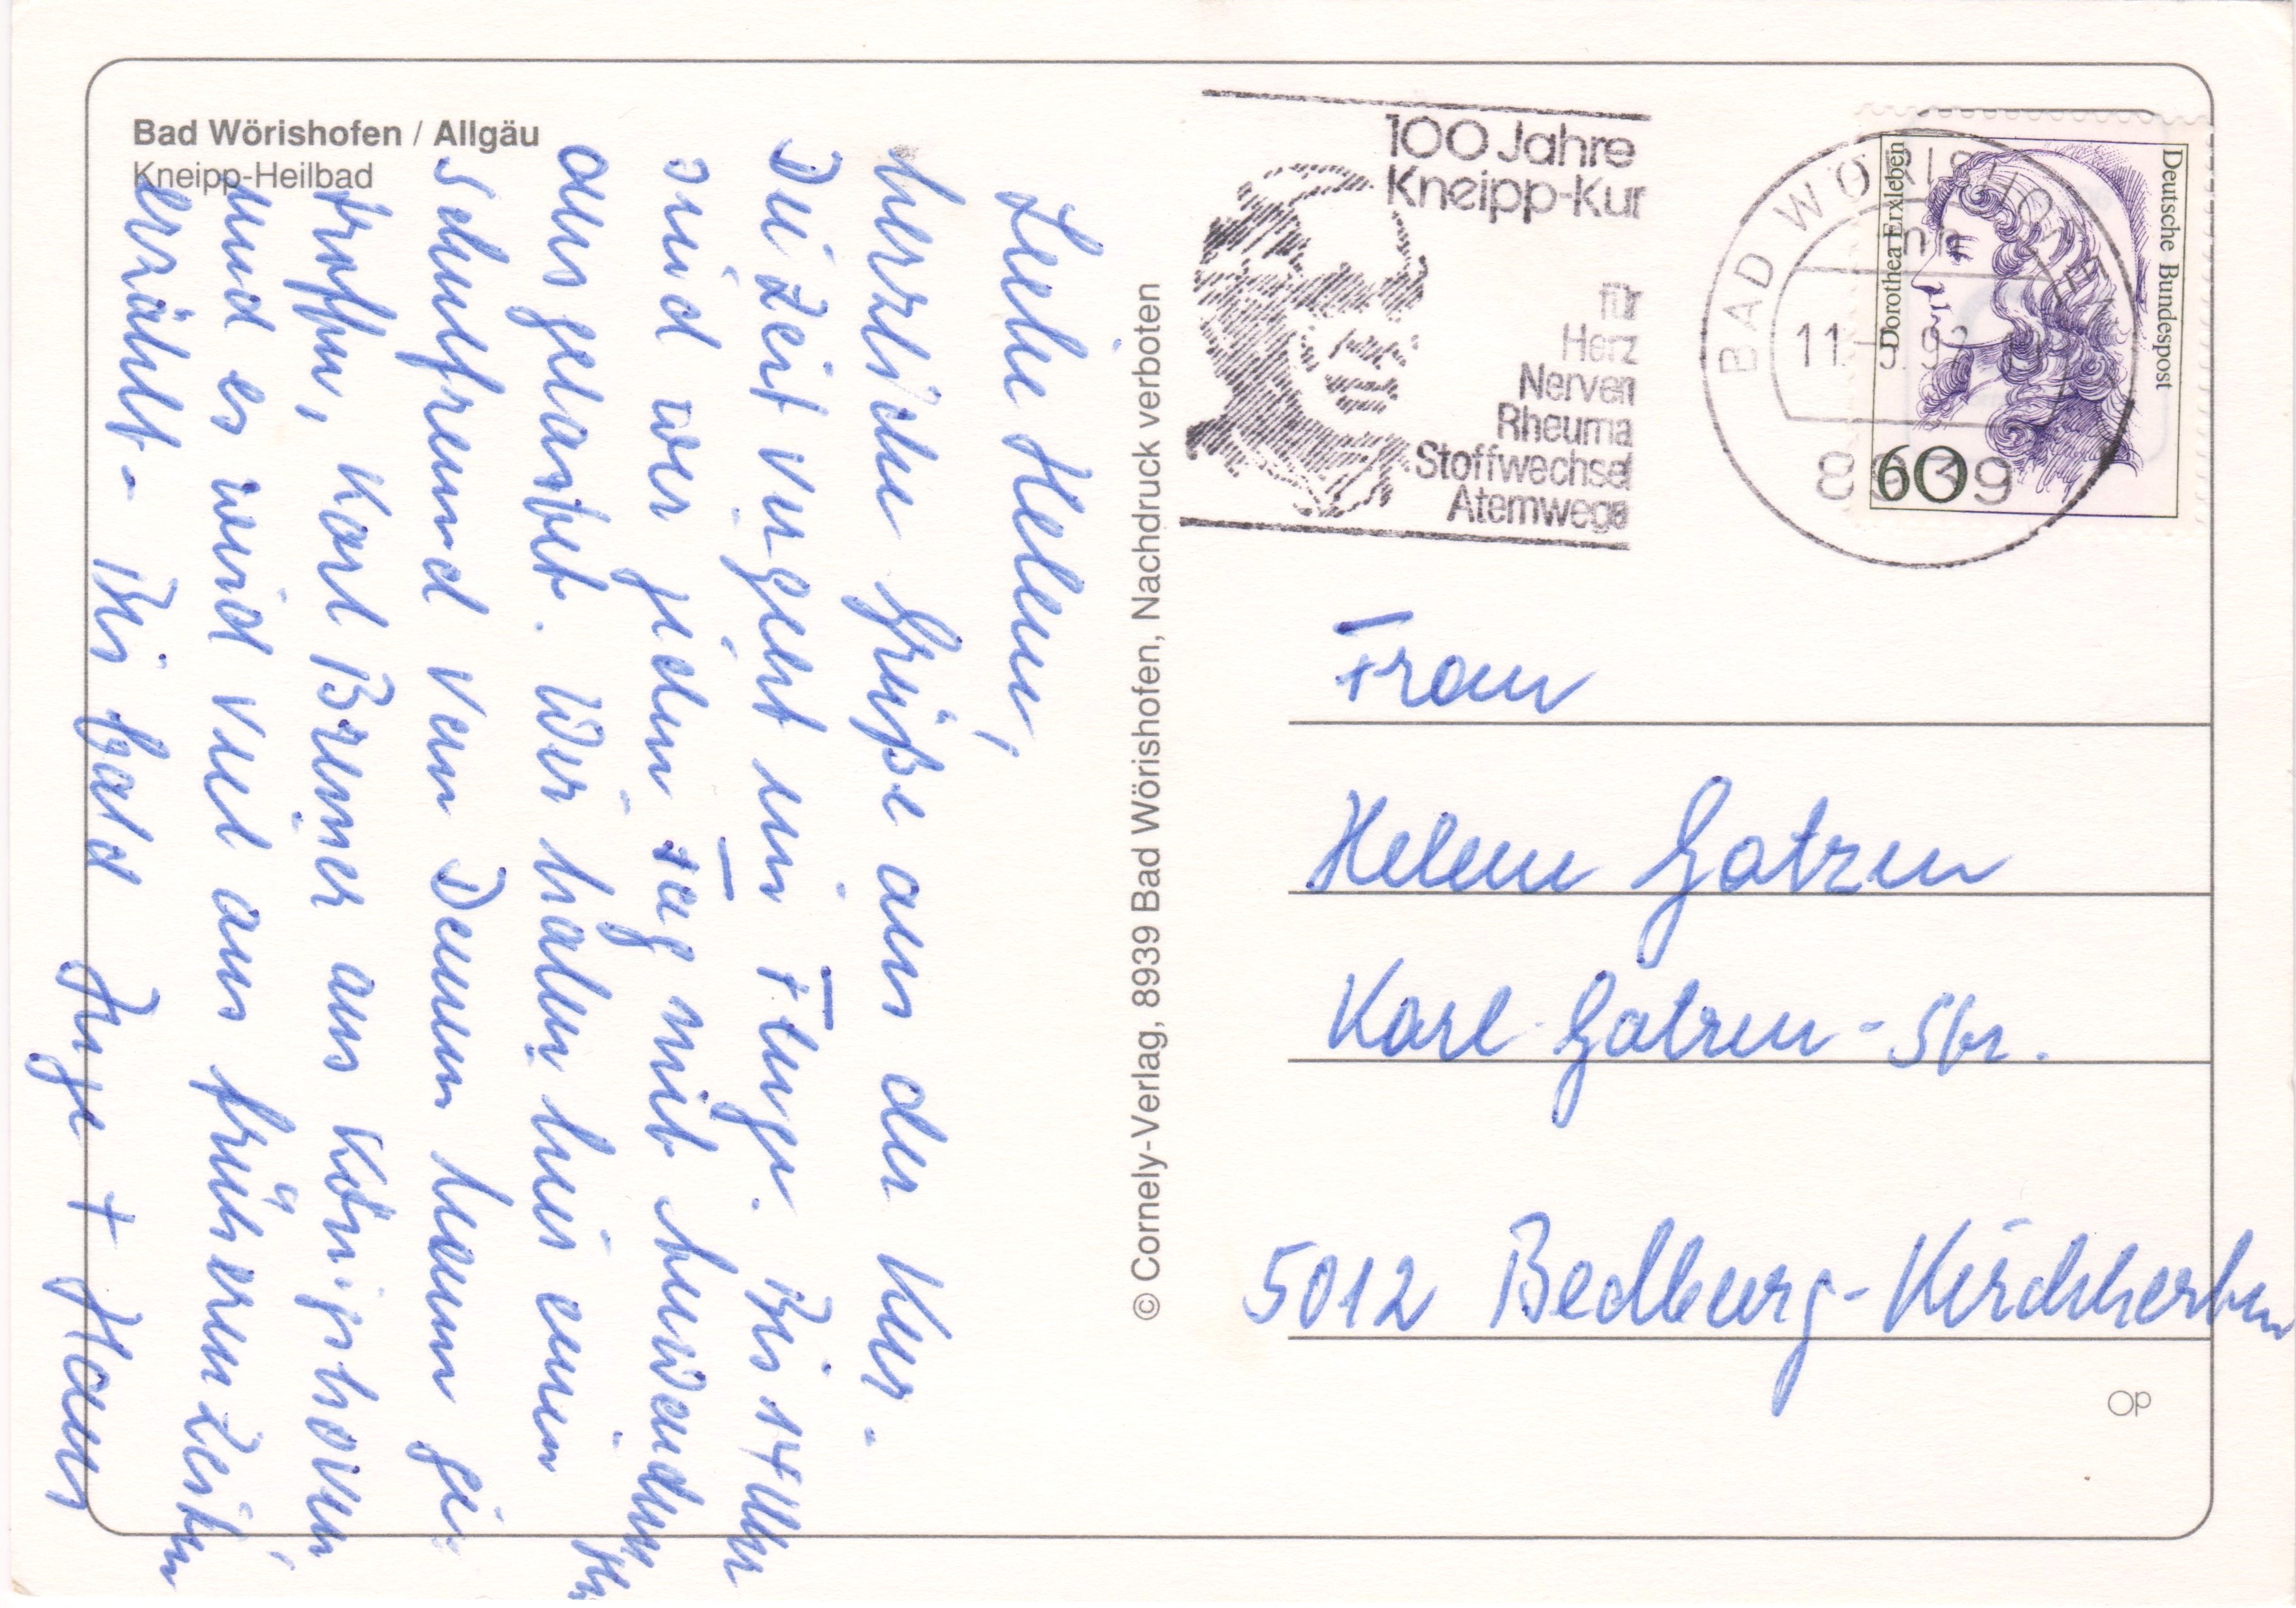 Bad Wörishofen / Allgäu
Kneipp-Heilbad
Liebe Helene,
herzliche Grüße aus der Kur.
Die Zeit vergeht im Fluge. Bis 14 Uhr
sind wir jeden Tag mit
ausgelastet. Wir haben hier einen
Schulfreund von Deinem ge-
troffen, Karl Bremer aus Königshoven
und es wird viel aus früheren Zeiten
erzählt. Bis bald
Inge + Hans
© Cornely-Verlag, 8939 Bad Wörishofen, Nachdruck verboten
100 Jahre
Kneipp-Kur
für
Herz
Nerven
Rheuma
Stoffwechsel
Atemwege
BAD WÖRISHOFEN
11.
8939
Deutsche Bundespost
Dorothea Erxleben
60
Frau
Helene Gatzen
Karl-Gatzen-Str.
5012 Bedburg-Kirchherten